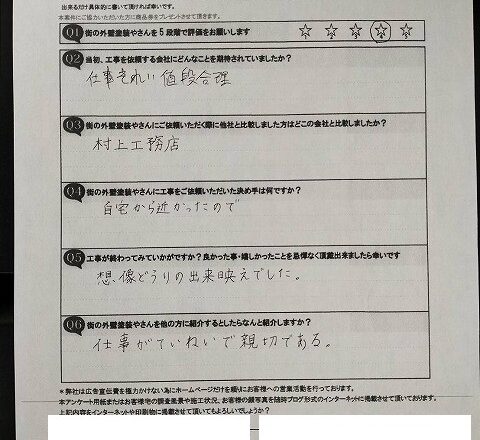 出来るだけ具体的に書いて頂ければ幸いです。
本案件にご協力いただいた方に商品券をプレゼントさせて頂きます。
Q1 街の外壁塗装やさんを5段階で評価をお願いします
Q2 当初、工事を依頼する会社にどんなことを期待されていましたか?
仕事きれい 値段合理
Q3 街の外壁塗装やさんにご依頼いただく際に他社と比較しました方はどこの会社と比較しましたか?
村上工務店
Q4 街の外壁塗装やさんに工事をご依頼いただいた決め手は何ですか?
自宅から近かったので
Q5 工事が終わってみていかがですか?良かった事・嬉しかったことを忌憚なく頂戴出来ましたら幸いです
想像どうりの出来映えでした。
Q6 街の外壁塗装やさんを他の方に紹介するとしたらなんと紹介しますか?
仕事がていねいで親切である。
*弊社は広告宣伝費を極力かけない為にホームページだけを頼りにお客様への営業活動を行っております。
本アンケート用紙またはお客様宅の調査風景や施工状況、お客様の顔写真を随時ブログ形式のインターネットに掲載させて頂いております。
上記内容をインターネットや印刷物に掲載させて頂いてもよろしいでしょうか?